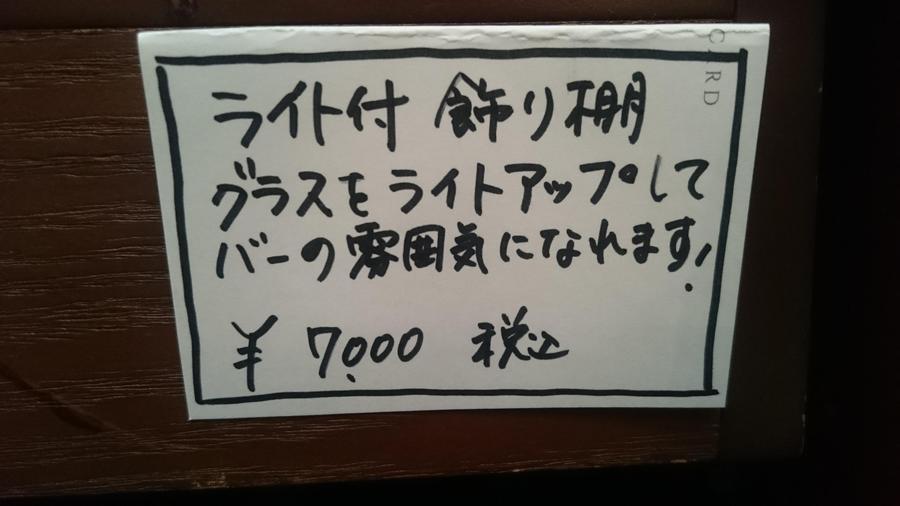 ライト付 飾り棚
グラスをライトアップして
バーの雰囲気になれます!
¥ 7,000 税込
CARD